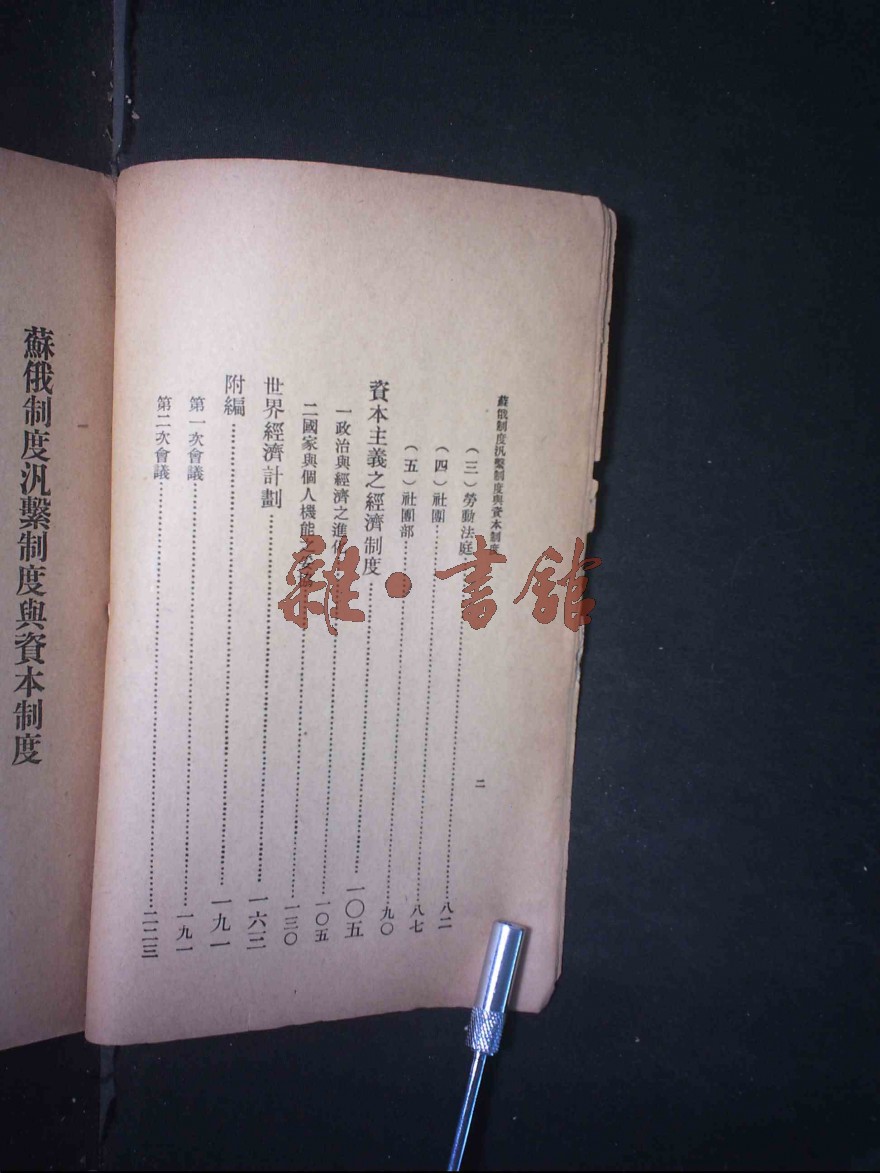 蘇俄制度汎繫制度與資本制度
二
（三）勞動法庭……八二
（四）社團……八七
（五）社團部……九〇
資本主義之經濟制度……一〇五
一政治與經濟之進化……一〇五
二國家與個人機能……一三〇
世界經濟計劃……一六二
附編……一九一
第一次會議……一九一
第二次會議……二二三
蘇俄制度汎繫制度與資本制度
雜·書館